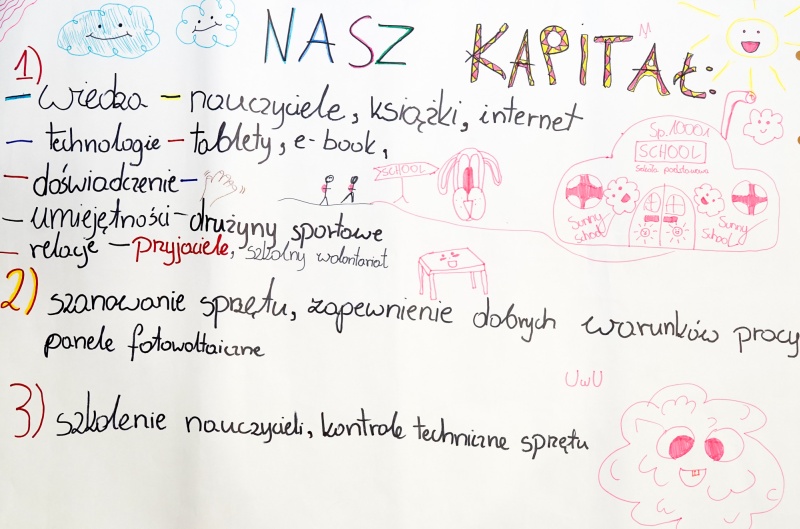 NASZ KAPITAŁ:
1)
– wiedza – nauczyciele, książki, internet
– technologie – tablety, e-book,
– doświadczenie –
SCHOOL
Sp. 10001
SCHOOL
Szkoła podstawowa
Sunny School
Sunny School
– umiejętności – drużyny sportowe
– relacje – Przyjaciele, szkolny wolontariat
2) szanowanie sprzętu, zapewnienie dobrych warunków pracy
panele fotowoltaiczne
UwU
3) szkolenie nauczycieli, kontrole techniczne sprzętu